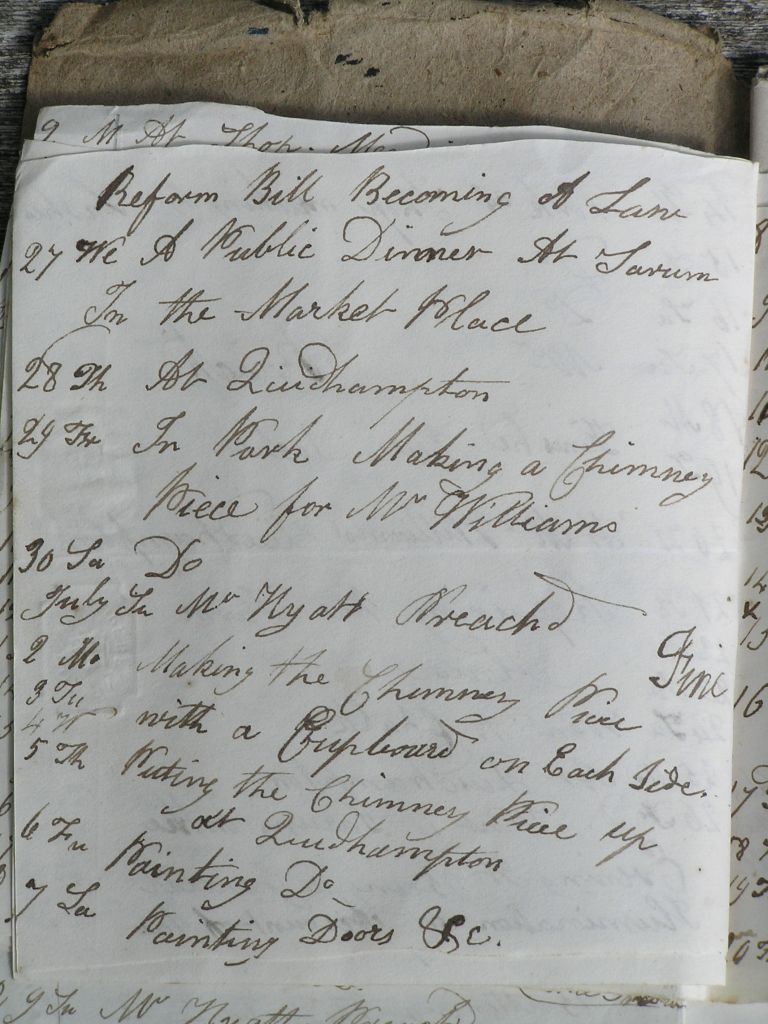 9 M At Shop.
Reform Bill Becoming A Law
27 We A Public Dinner At Sarum
In the Market Place
28 Th At Quidhampton
29 Fr In Park Making a Chimney
Piece for Mr Williams
30 Sa Do
July Su Mr Hyatt Preachd
2 Mo Making the Chimney Piece Fine
3 Tu with a Cupboard on Each Side.
4 W
5 Th Puting the Chimney Piece up
at Quidhampton
6 Fr Painting Do
7 Sa Painting Doors &c.